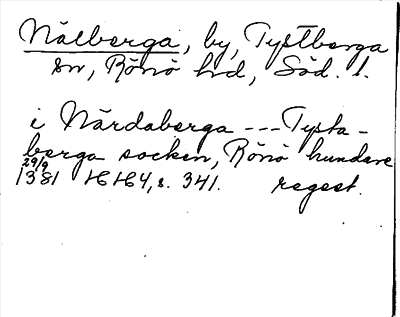 Nälberga, by, Tystberga
sn, Rönö hd, Söd. l.
i Närdaberga --- Tysta-
berga socken, Rönö hundare
29/9
1381 HH4, s. 341. regest.